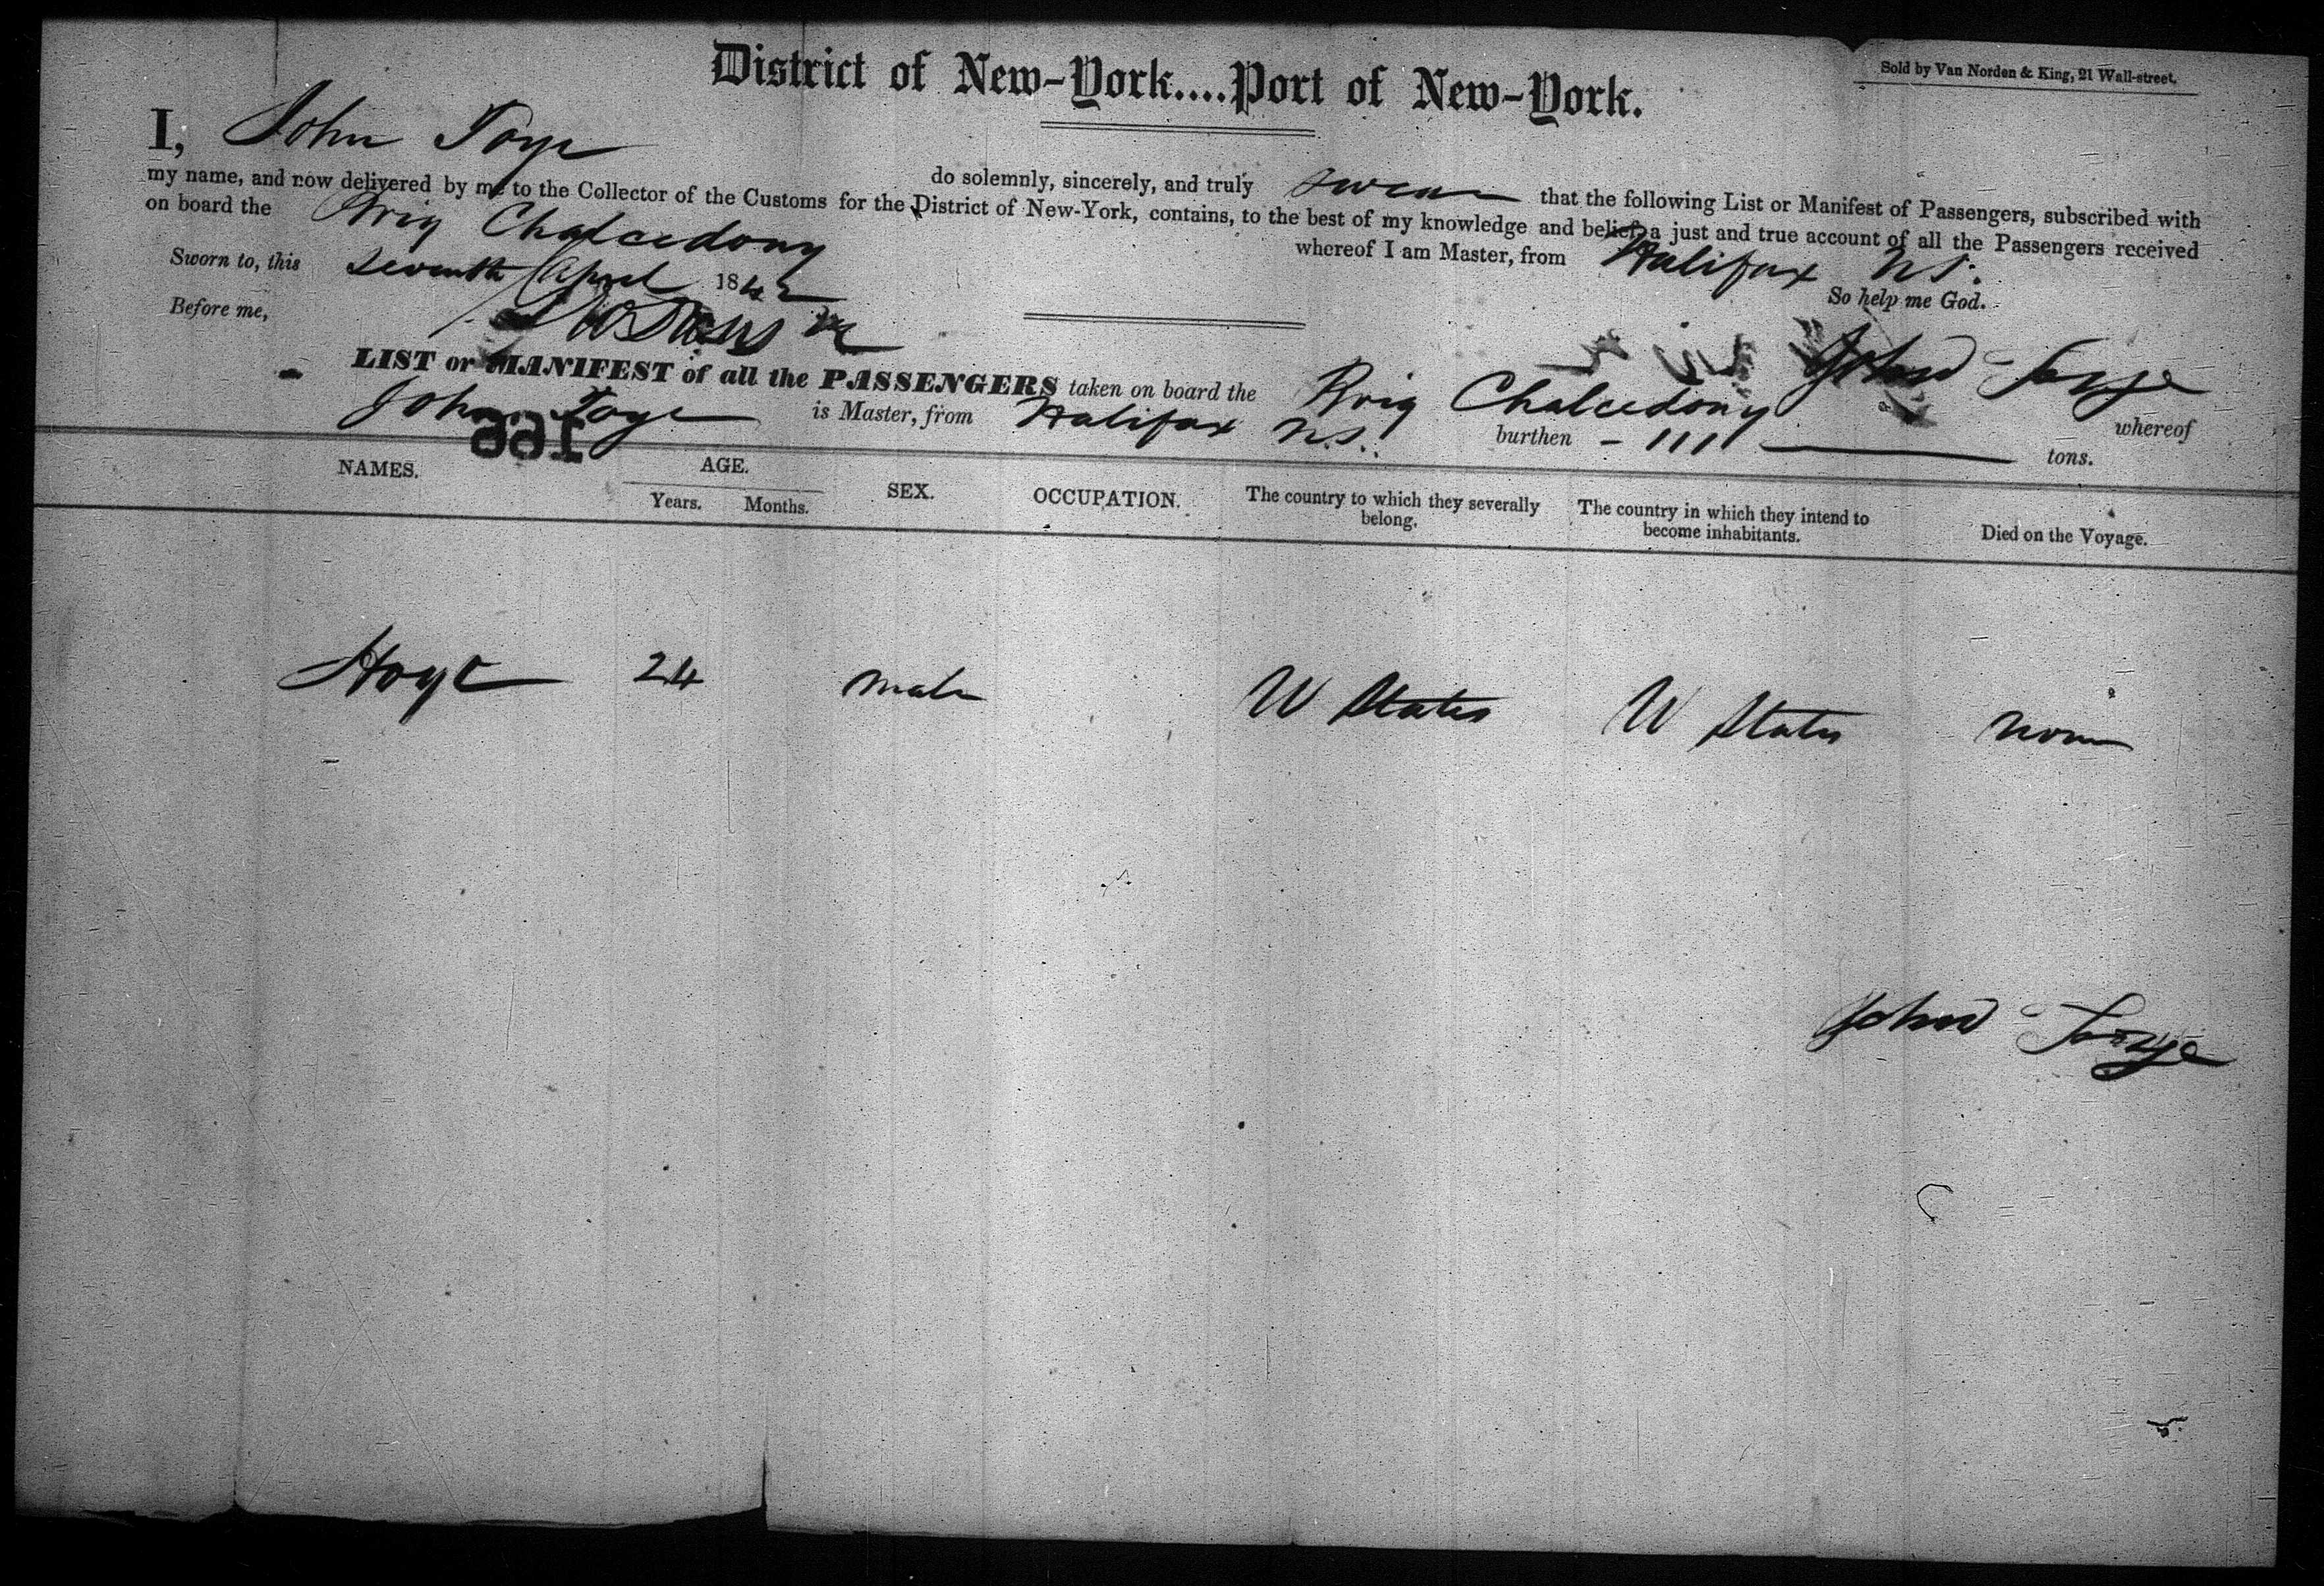 Sold by Van Norden & King, 21 Wall-street.
District of New-York....Port of New-York.
I, John Toye do solemnly, sincerely, and truly swear that the following List or Manifest of Passengers, subscribed with
my name, and now delivered by me to the Collector of the Customs for the District of New-York, contains, to the best of my knowledge and belief, a just and true account of all the Passengers received
on board the Brig Chalcedony whereof I am Master, from Halifax N.S.
Sworn to, this seventh April 1842 So help me God.
Before me,
John Toye
LIST or MANIFEST of all the PASSENGERS taken on board the Brig Chalcedony whereof
John Toye is Master, from Halifax N.S. burthen - 111 tons.
NAMES. AGE. SEX. OCCUPATION. The country to which they severally belong. The country in which they intend to become inhabitants. Died on the Voyage.
Years. Months.
Hoyt 24 male U States U States none
John Toye